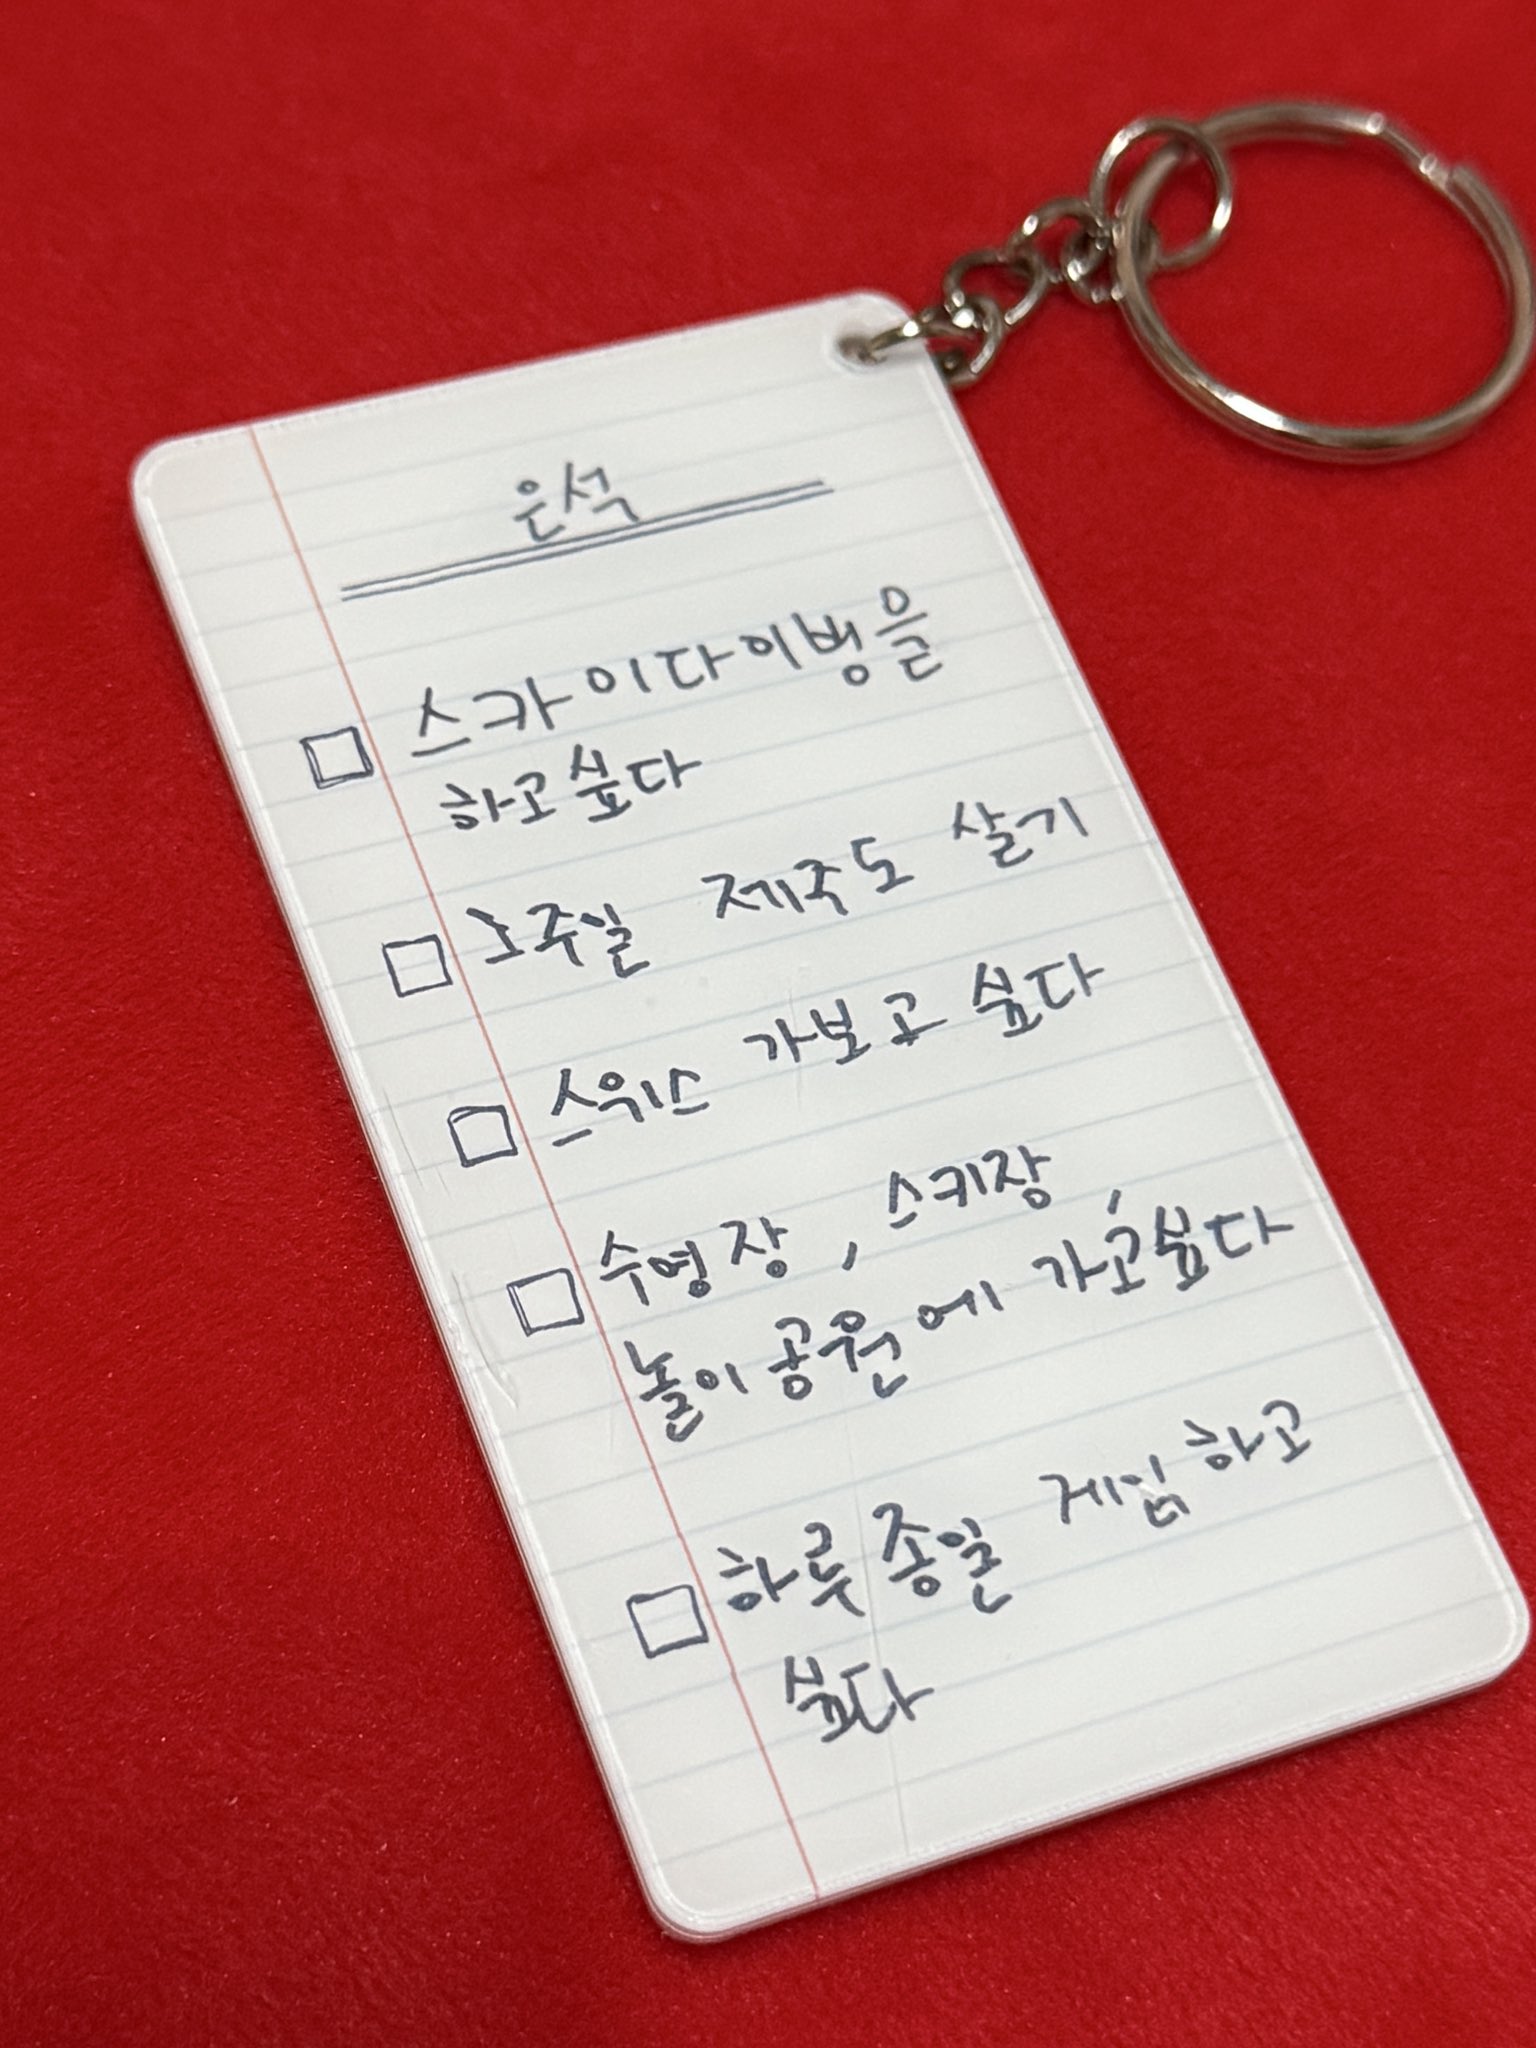 은석
스카이다이빙을
하고싶다
제주도 살기
스위스 가보고 싶다
수영장, 스키장,
놀이공원에 가고싶다
하루종일 게임하고
싶다